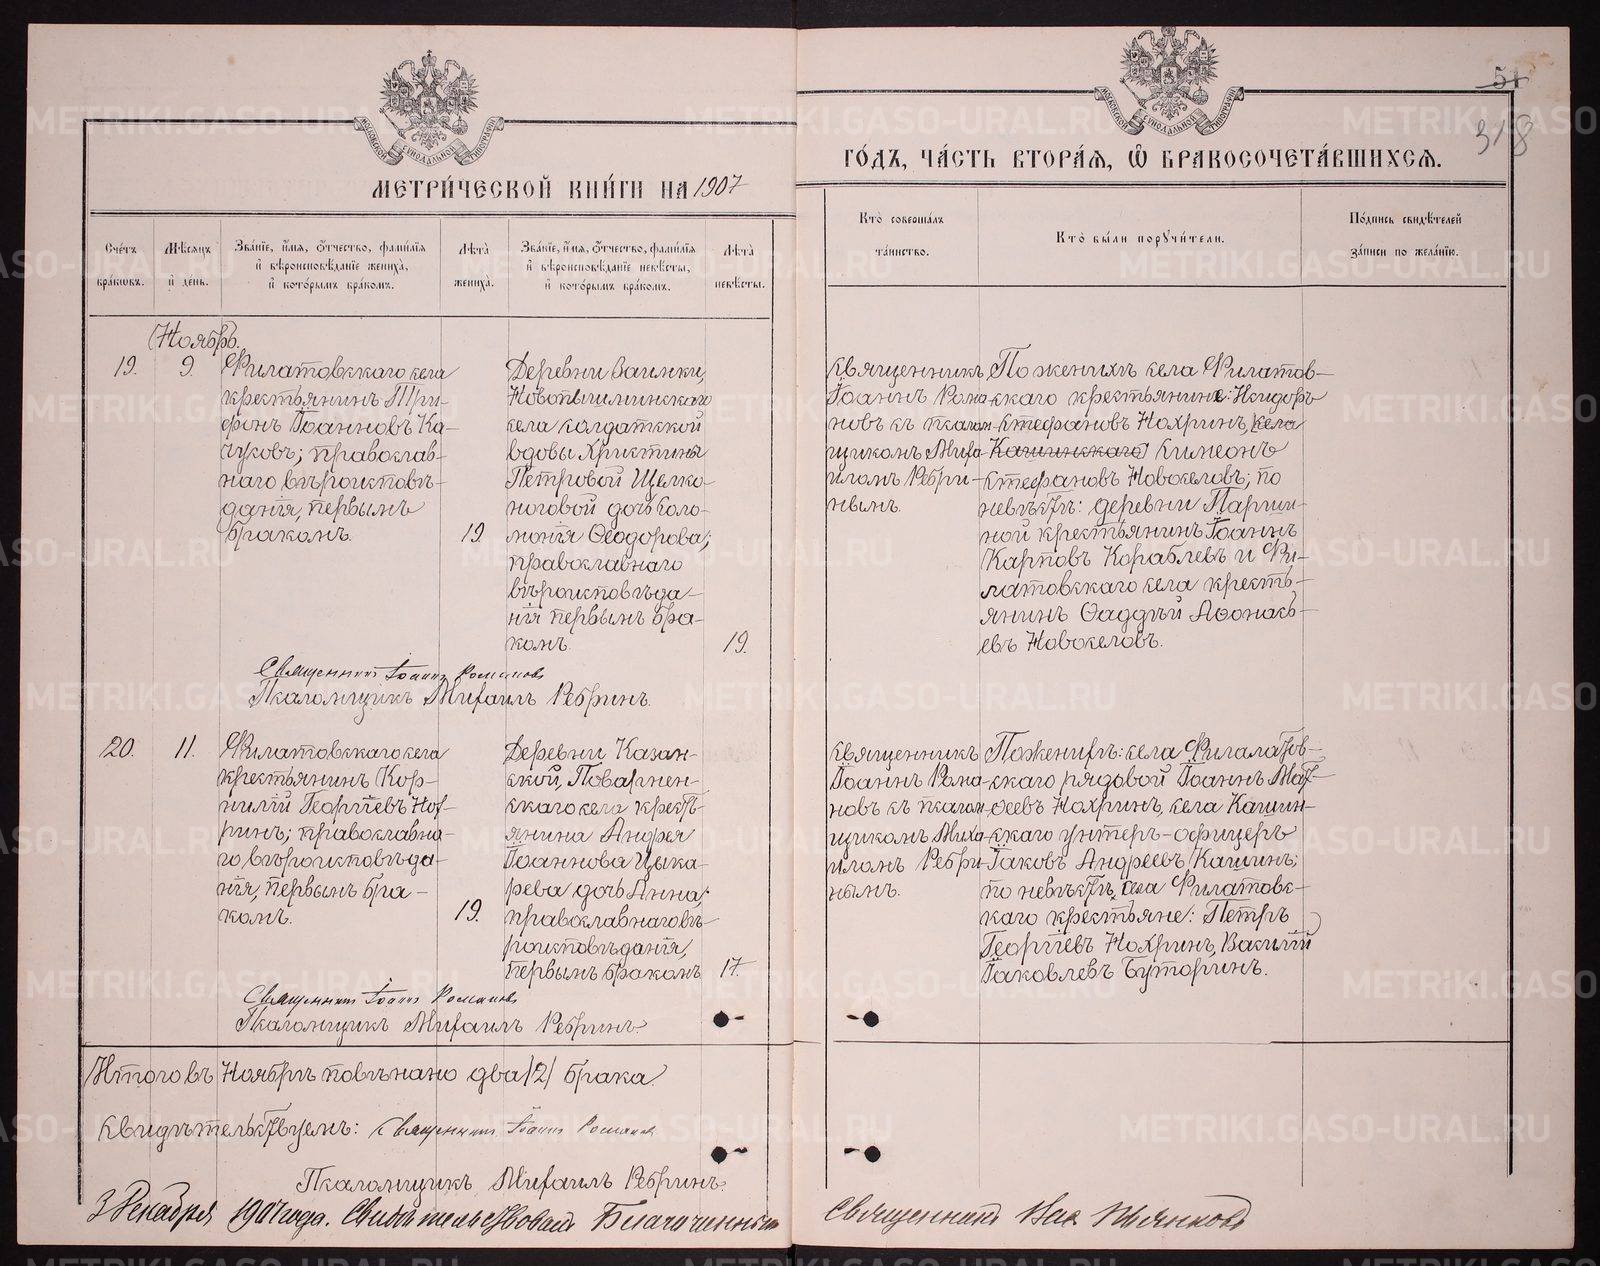 МЕТРИ́ЧЕСКОЙ КНИ́ГИ НА 1907
ГО́ДЪ, ЧА́СТЬ ВТОРА́Я, Ѽ БРАКОСОЧЕТА́ВШИХСЯ.
51
318
Сче́тъ бра́ковъ.
Мѣ́сяцъ и҆ де́нь.
Зва́нїе, и҆́мя, ѻ҆́тчество, фами́лїя
и҆ вѣроисповѣ́данїе жениха̀,
и҆ кото́рымъ бра́комъ.
Лѣ́та жениха̀.
Зва́нїе, и҆́мя, ѻ҆́тчество, фами́лїя
и҆ вѣроисповѣ́данїе невѣ́сты,
и҆ кото́рымъ бра́комъ.
Лѣ́та невѣ́сты.
Кто̀ соверша́лъ
та́инство.
Кто̀ бы́ли порꙋчи́тели.
По́дпись свидѣ́телей
за́писи по жела́нїю.
Ноябрь.
19.
9.
Филатовскаго села
крестьянинъ Три-
фонъ Іоанновъ Ка-
чуковъ; православ-
наго вѣроисповѣ-
данія, первымъ
бракомъ.
19
Деревни Заимки,
Новопышминскаго
села солдатской
вдовы Христины
Петровой Щелко-
ноговой дочь Соло-
монія Ѳеодорова;
православнаго
вѣроисповѣда-
нія первымъ бра-
комъ.
19.
Священникъ Іоаннъ Романовъ
Псаломщикъ Михаилъ Ребринъ.
Священникъ
Іоаннъ Рома-
новъ съ псалом-
щикомъ Миха-
иломъ Ребри-
нымъ.
По женихѣ села Филатов-
скаго крестьянинъ: Исидоръ
Стефановъ Нохринъ, села
Кашинскаго Симеонъ
Стефановъ Новоселовъ; по
невѣстѣ: деревни Паршин-
ной крестьянинъ Іоаннъ
Карповъ Кораблевъ и Фи-
латовскаго села кресть-
янинъ Ѳаддѣй Аѳонась-
евъ Новоселовъ.
20.
11.
Филатовскаго села
крестьянинъ Кор-
нилій Георгіевъ Нох-
ринъ; православна-
го вѣроисповѣда-
нія, первымъ бра-
комъ.
19.
Деревни Казан-
ской, Поварнен-
скаго села кресть-
янина Андрея
Іоаннова Цыка-
рева дочь Анна;
православнаго вѣ-
роисповѣданія,
первымъ бракомъ
17.
Священникъ Іоаннъ Романовъ
Псаломщикъ Михаилъ Ребринъ.
Священникъ
Іоаннъ Рома-
новъ съ псалом-
щикомъ Миха-
иломъ Ребри-
нымъ.
По женихѣ: села Филалатов-
скаго рядовой Іоаннъ Мат-
ѳеевъ Нохринъ, села Кашин-
скаго унтеръ-офицеръ
Іаковъ Андреевъ Кашинъ;
по невѣстѣ, села Филатовс-
каго крестьяне: Петръ
Георгіевъ Нохринъ, Василій
Іаковлевъ Буторинъ.
Итого въ Ноябрѣ повѣнчано два /2/ брака.
Свидѣтельствуемъ: Священникъ Іоаннъ Романовъ
Псаломщикъ Михаилъ Ребринъ.
3 Декабря 1907 года. Свидѣтельствовалъ Благочинный
Священникъ
METRIKI.GASO-URAL.RU